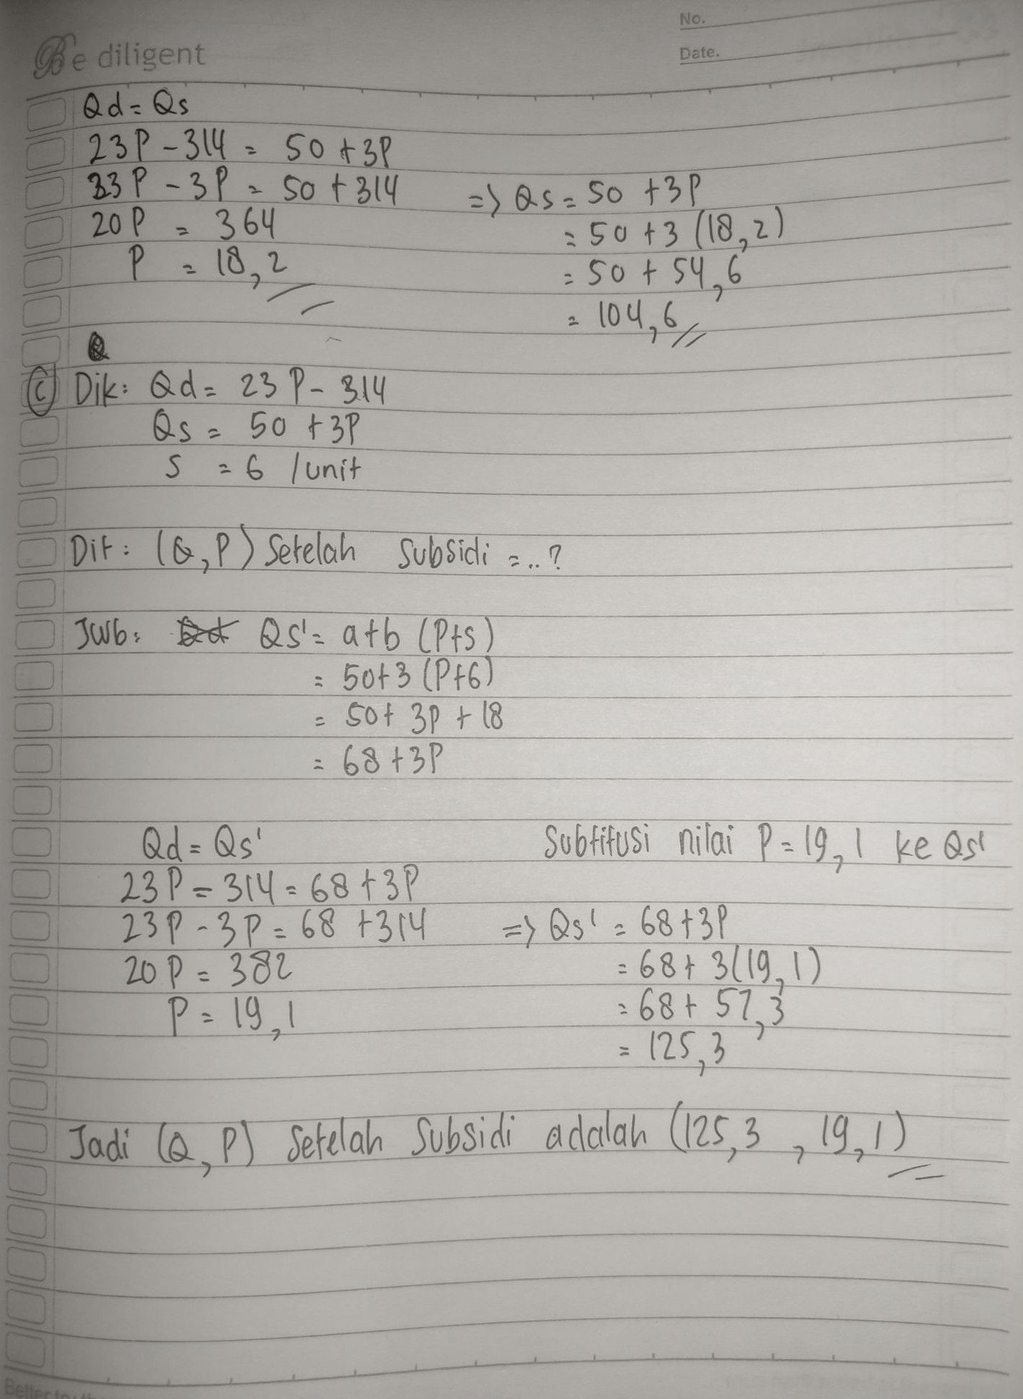 No.
Date.
Be diligent
Qd = Qs
23P - 314 = 50 + 3P
23P - 3P = 50 + 314
20P = 364
P = 18,2
=> Qs = 50 + 3P
= 50 + 3 (18,2)
= 50 + 54,6
= 104,6
Q
(C) Dik: Qd = 23P - 314
Qs = 50 + 3P
S = 6 /unit
Dit: (Q,P) Setelah Subsidi = ..?
Jwb: Qd Qs' = a+b (P+s)
= 50+3 (P+6)
= 50+ 3P + 18
= 68 +3P
Qd = Qs'
23P - 314 = 68 + 3P
23P - 3P = 68 + 314
20P = 382
P = 19,1
Subtitusi nilai P = 19,1 ke Qs'
=> Qs' = 68+3P
= 68+ 3(19,1)
= 68+ 57,3
= 125,3
Jadi (Q,P) Setelah Subsidi adalah (125,3 , 19,1)